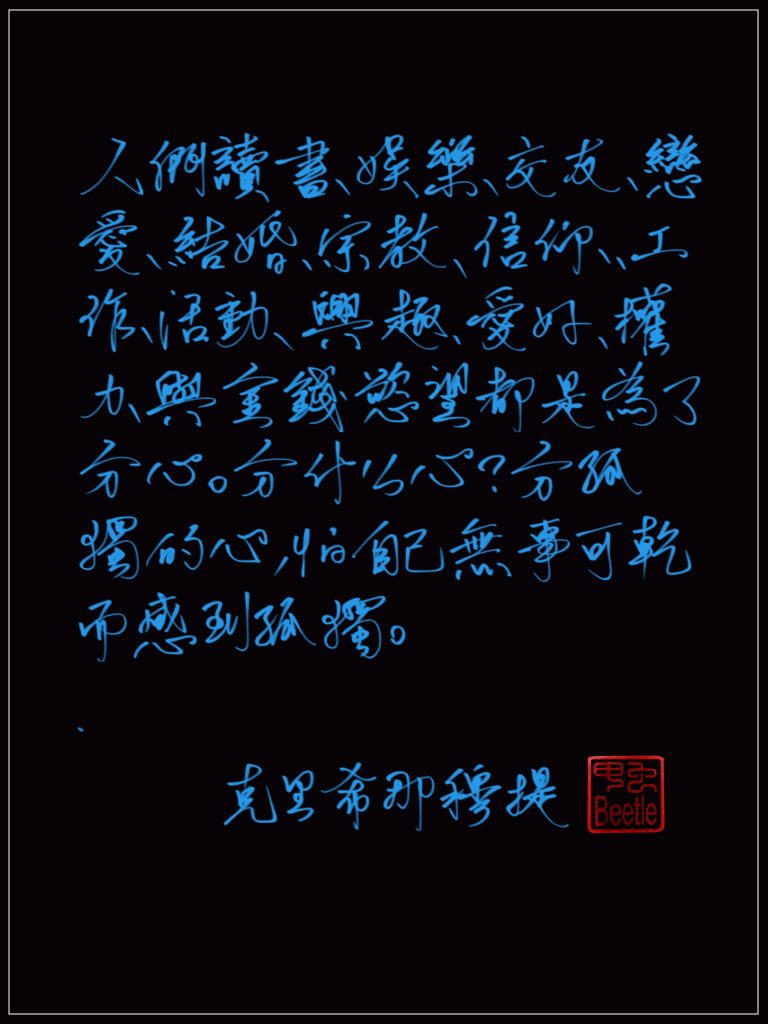 人們讀書、娛樂、交友、戀
愛、結婚、宗教、信仰、、工
作、活動、興趣、愛好、權
力、與金錢慾望都是為了
分心。分什么心?分孤
獨的心,怕自己無事可乾
而感到孤獨。
克里希那穆提
甲虫
Beetle